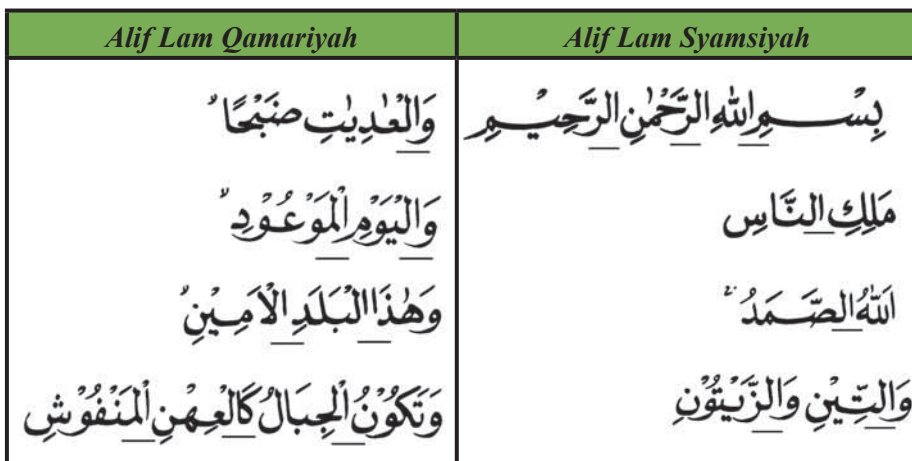 Alif Lam Qamariyah
Alif Lam Syamsiyah
وَالْعٰدِيٰتِ صَبْحًا ۙ
بِسْمِ اللّٰهِ الرَّحْمٰنِ الرَّحِيْمِ
وَالْيَوْمِ الْمَوْعُوْدِ ۙ
مَلِكِ النَّاسِ
وَهٰذَا الْبَلَدِ الْاَمِيْنِ ۙ
اَللّٰهُ الصَّمَدُ ۚ
وَتَكُوْنُ الْجِبَالُ كَالْعِهْنِ الْمَنْفُوْشِ
وَالتِّيْنِ وَالزَّيْتُوْنِ